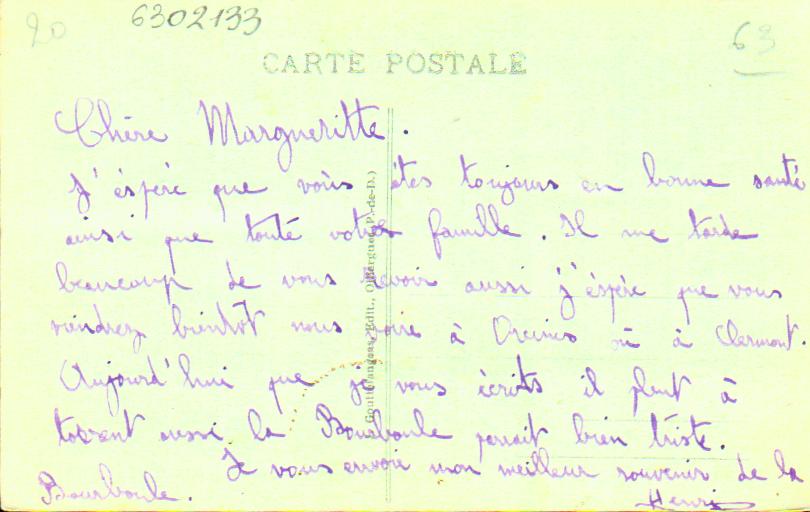 20
6302133
63
CARTE POSTALE
Chère Margueritte.
J'éspère que vous êtes toujours en bonne santé
ainsi que touté votre famille. Il me tarde
beaucoup de vous revoir aussi j'éspère que vous
viendrez bientôt nous voire à Orcines ou à Clermont.
Aujourd'hui que je vous écrits il pleut à
torrent aussi la Bourboule parrait bien triste.
Je vous envoie mon meilleur souvenir de la
Bourboule.
Henri
Edit., (P.-de-D.)